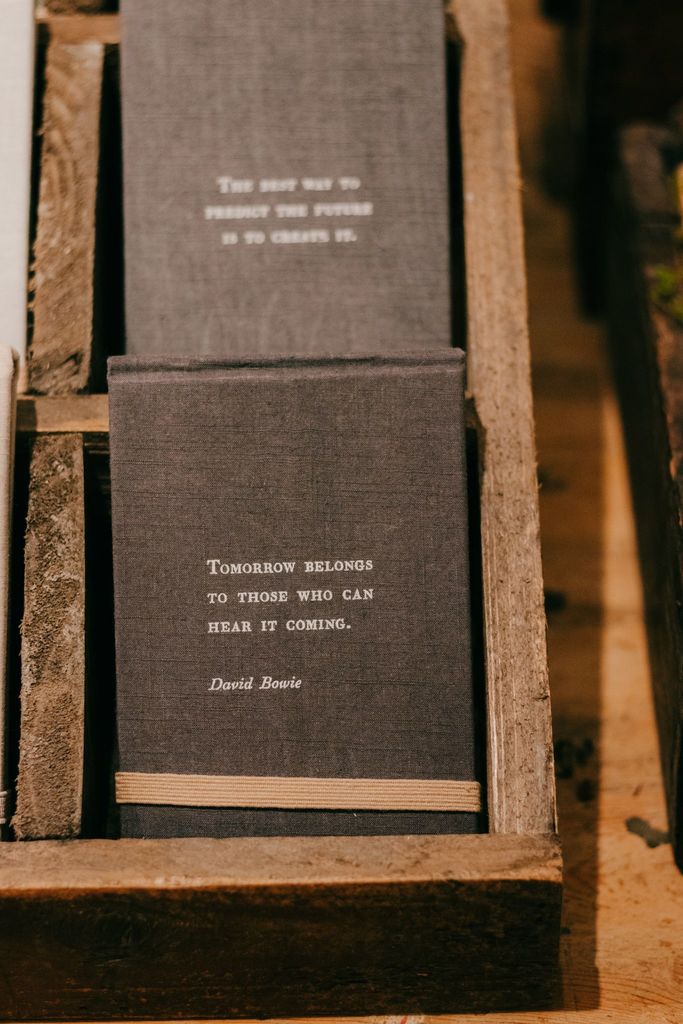 The best way to
predict the future
is to create it.
Tomorrow belongs
to those who can
hear it coming.
David Bowie